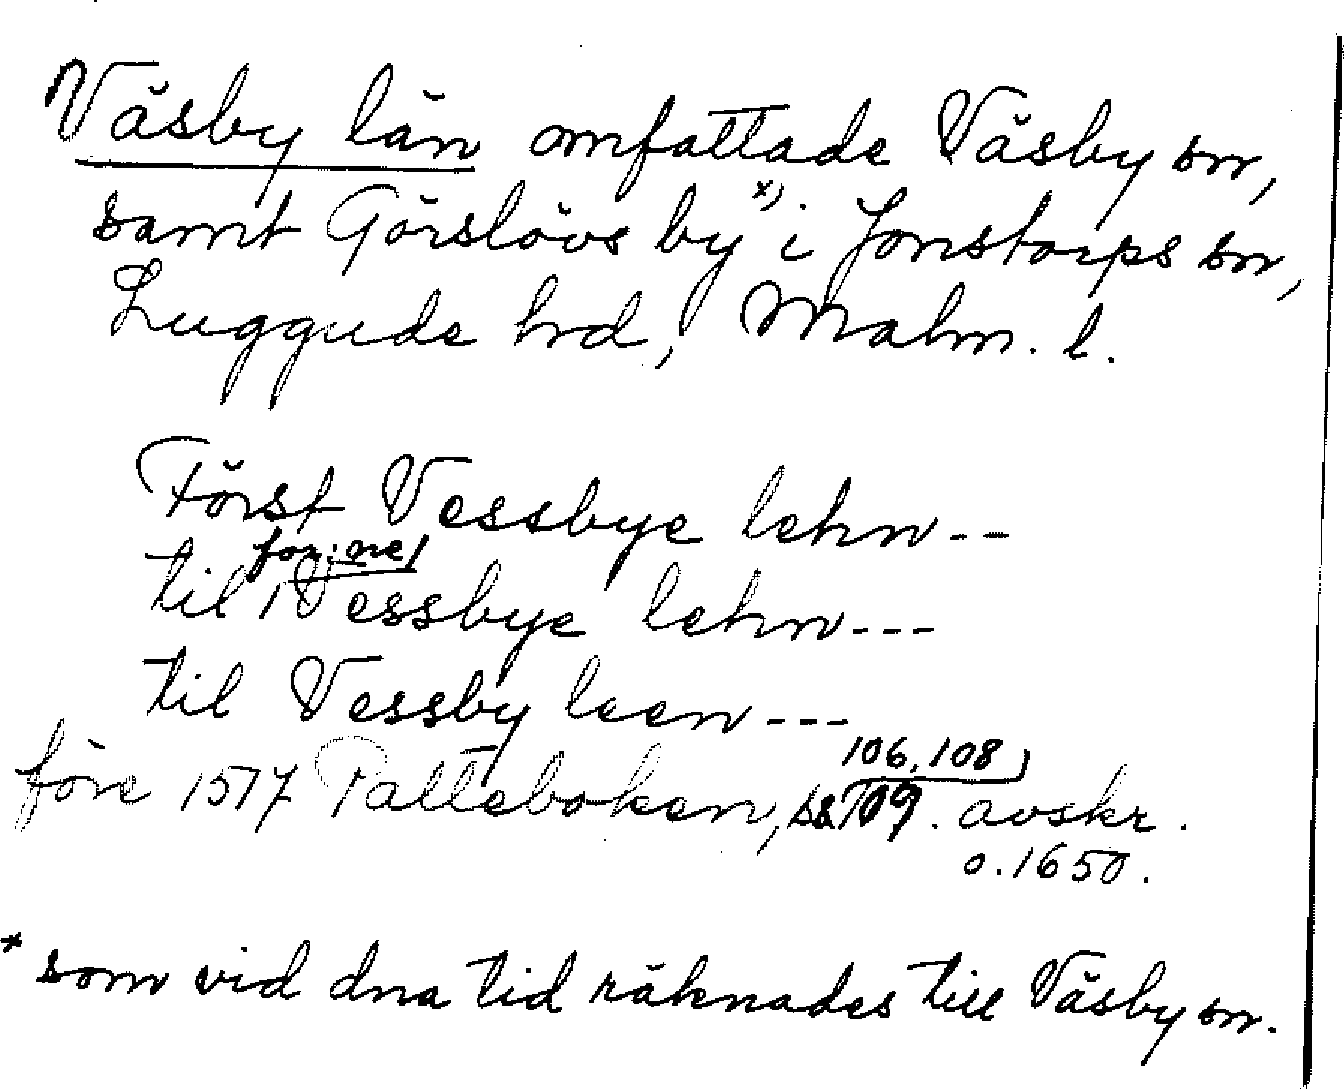 Väsby län omfattade Väsby sn,
samt Görslövs by*) i Jonstorps sn,
Luggude hd, Malm. l.
Först Vessbye lehn---
for:ne/
til Vessbye lehn---
til Vessby leen---
106, 108)
före 1577 Palteboken, s. 109. avskr.
o. 1650.
* som vid dna tid räknades till Väsby sn.